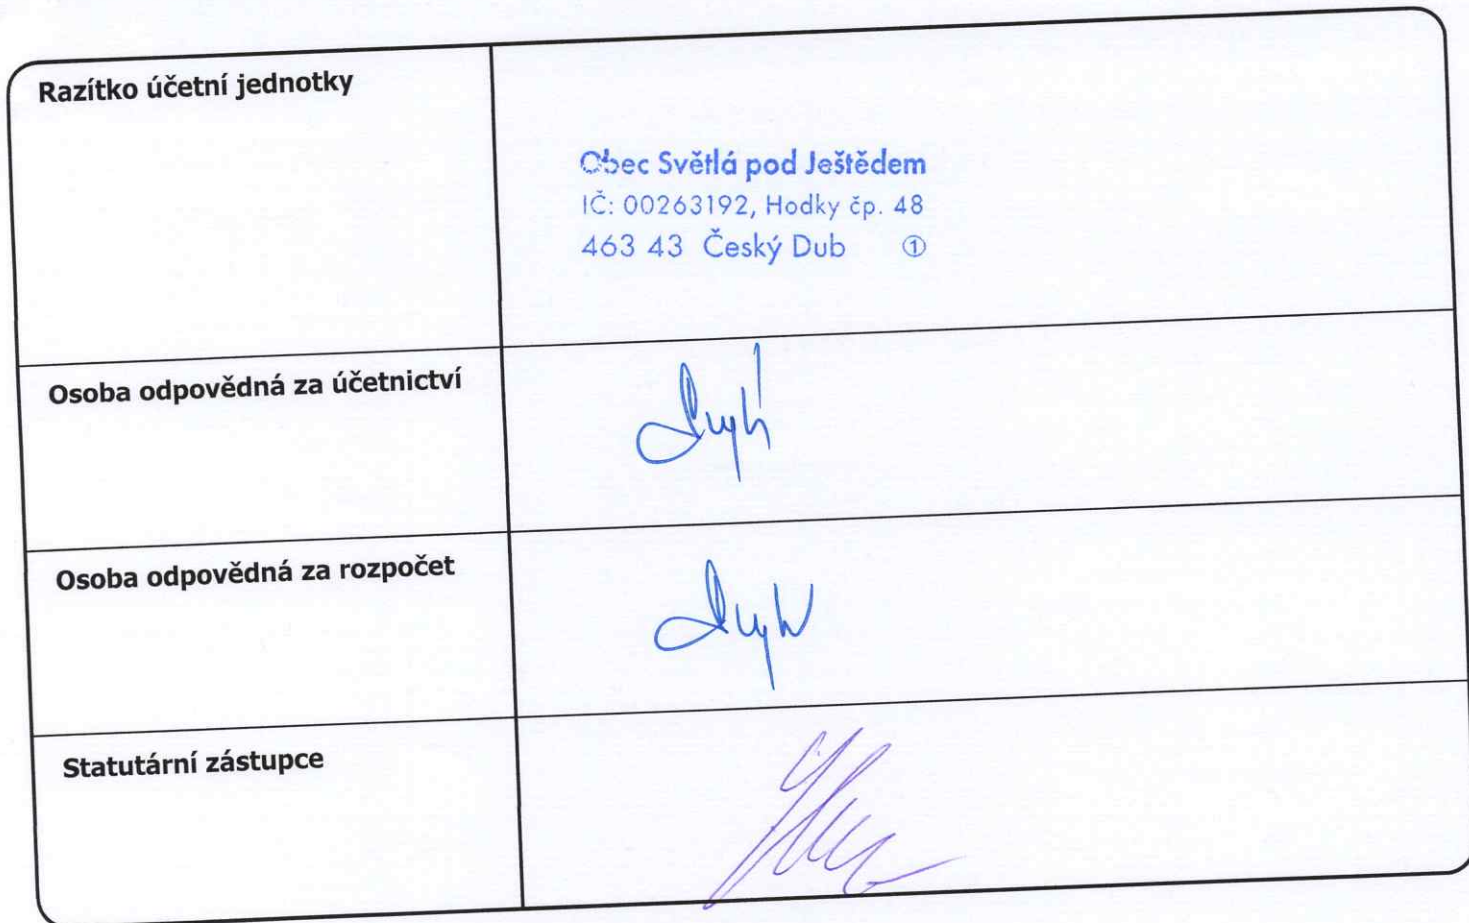 Razítko účetní jednotky
Obec Světlá pod Ještědem
IČ: 00263192, Hodky čp. 48
463 43 Český Dub ①
Osoba odpovědná za účetnictví
Osoba odpovědná za rozpočet
Statutární zástupce